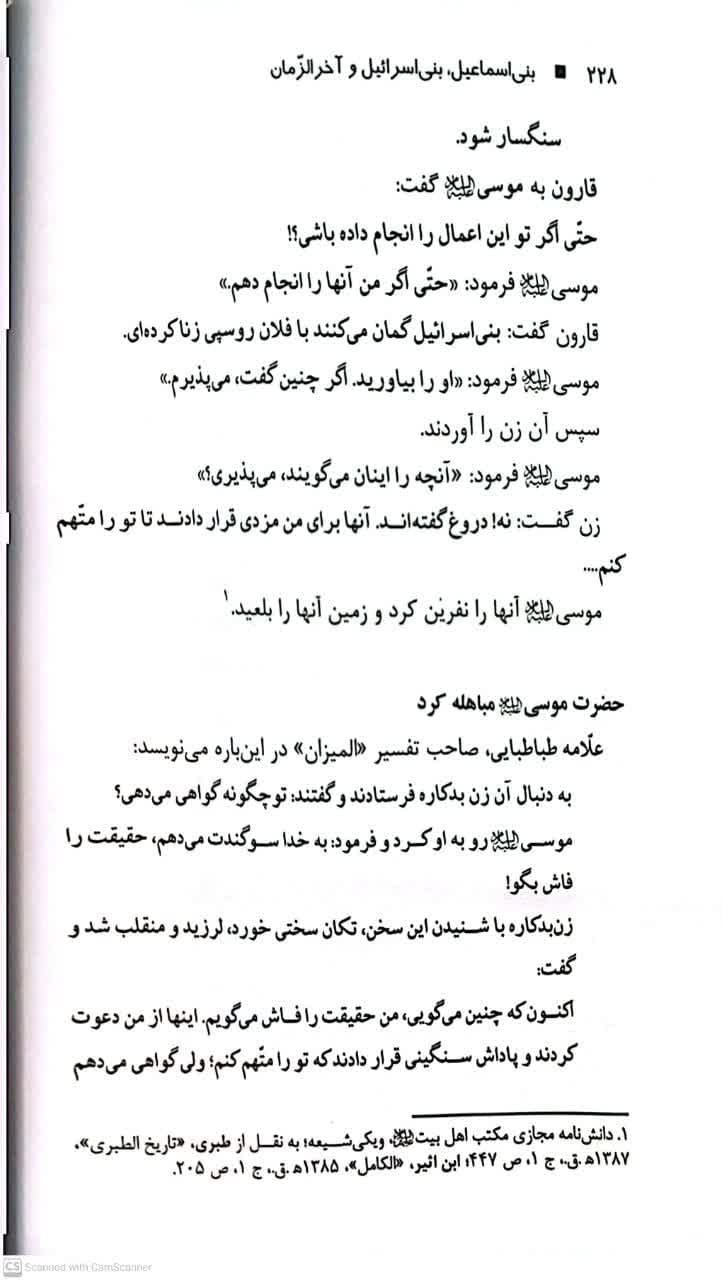 ۲۲۸ ■ بنی‌اسماعیل، بنی‌اسرائیل و آخرالزّمان
سنگسار شود.
قارون به موسی علیه‌السلام گفت:
حتّی اگر تو این اعمال را انجام داده باشی؟!
موسی علیه‌السلام فرمود: «حتّی اگر من آنها را انجام دهم.»
قارون گفت: بنی‌اسرائیل گمان می‌کنند با فلان روسپی زنا کرده‌ای.
موسی علیه‌السلام فرمود: «او را بیاورید. اگر چنین گفت، می‌پذیرم.»
سپس آن زن را آوردند.
موسی علیه‌السلام فرمود: «آنچه را اینان می‌گویند، می‌پذیری؟»
زن گفت: نه! دروغ گفته‌اند. آنها برای من مزدی قرار دادند تا تو را متّهم
کنم....
موسی علیه‌السلام آنها را نفرین کرد و زمین آنها را بلعید.۱
حضرت موسی علیه‌السلام مباهله کرد
علّامه طباطبایی، صاحب تفسیر «المیزان» در این‌باره می‌نویسد:
به دنبال آن زن بدکاره فرستادند و گفتند: تو چگونه گواهی می‌دهی؟
موسی علیه‌السلام رو به او کرد و فرمود: به خدا سوگندت می‌دهم، حقیقت را
فاش بگو!
زن‌بدکاره با شنیدن این سخن، تکان سختی خورد، لرزید و منقلب شد و
گفت:
اکنون که چنین می‌گویی، من حقیقت را فاش می‌گویم. اینها از من دعوت
کردند و پاداش سنگینی قرار دادند که تو را متّهم کنم؛ ولی گواهی می‌دهم
۱. دانش‌نامه مجازی مکتب اهل بیت علیهم‌السلام، ویکی‌شیعه؛ به نقل از طبری، «تاریخ الطبری»،
۱۳۸۷ه‍.ق.، ج ۱، ص ۴۴۷؛ ابن اثیر، «الکامل»، ۱۳۸۵ه‍.ق.، ج ۱، ص ۲۰۵.
CS Scanned with CamScanner